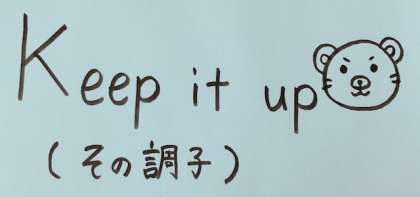 Keep it up
(その調子)